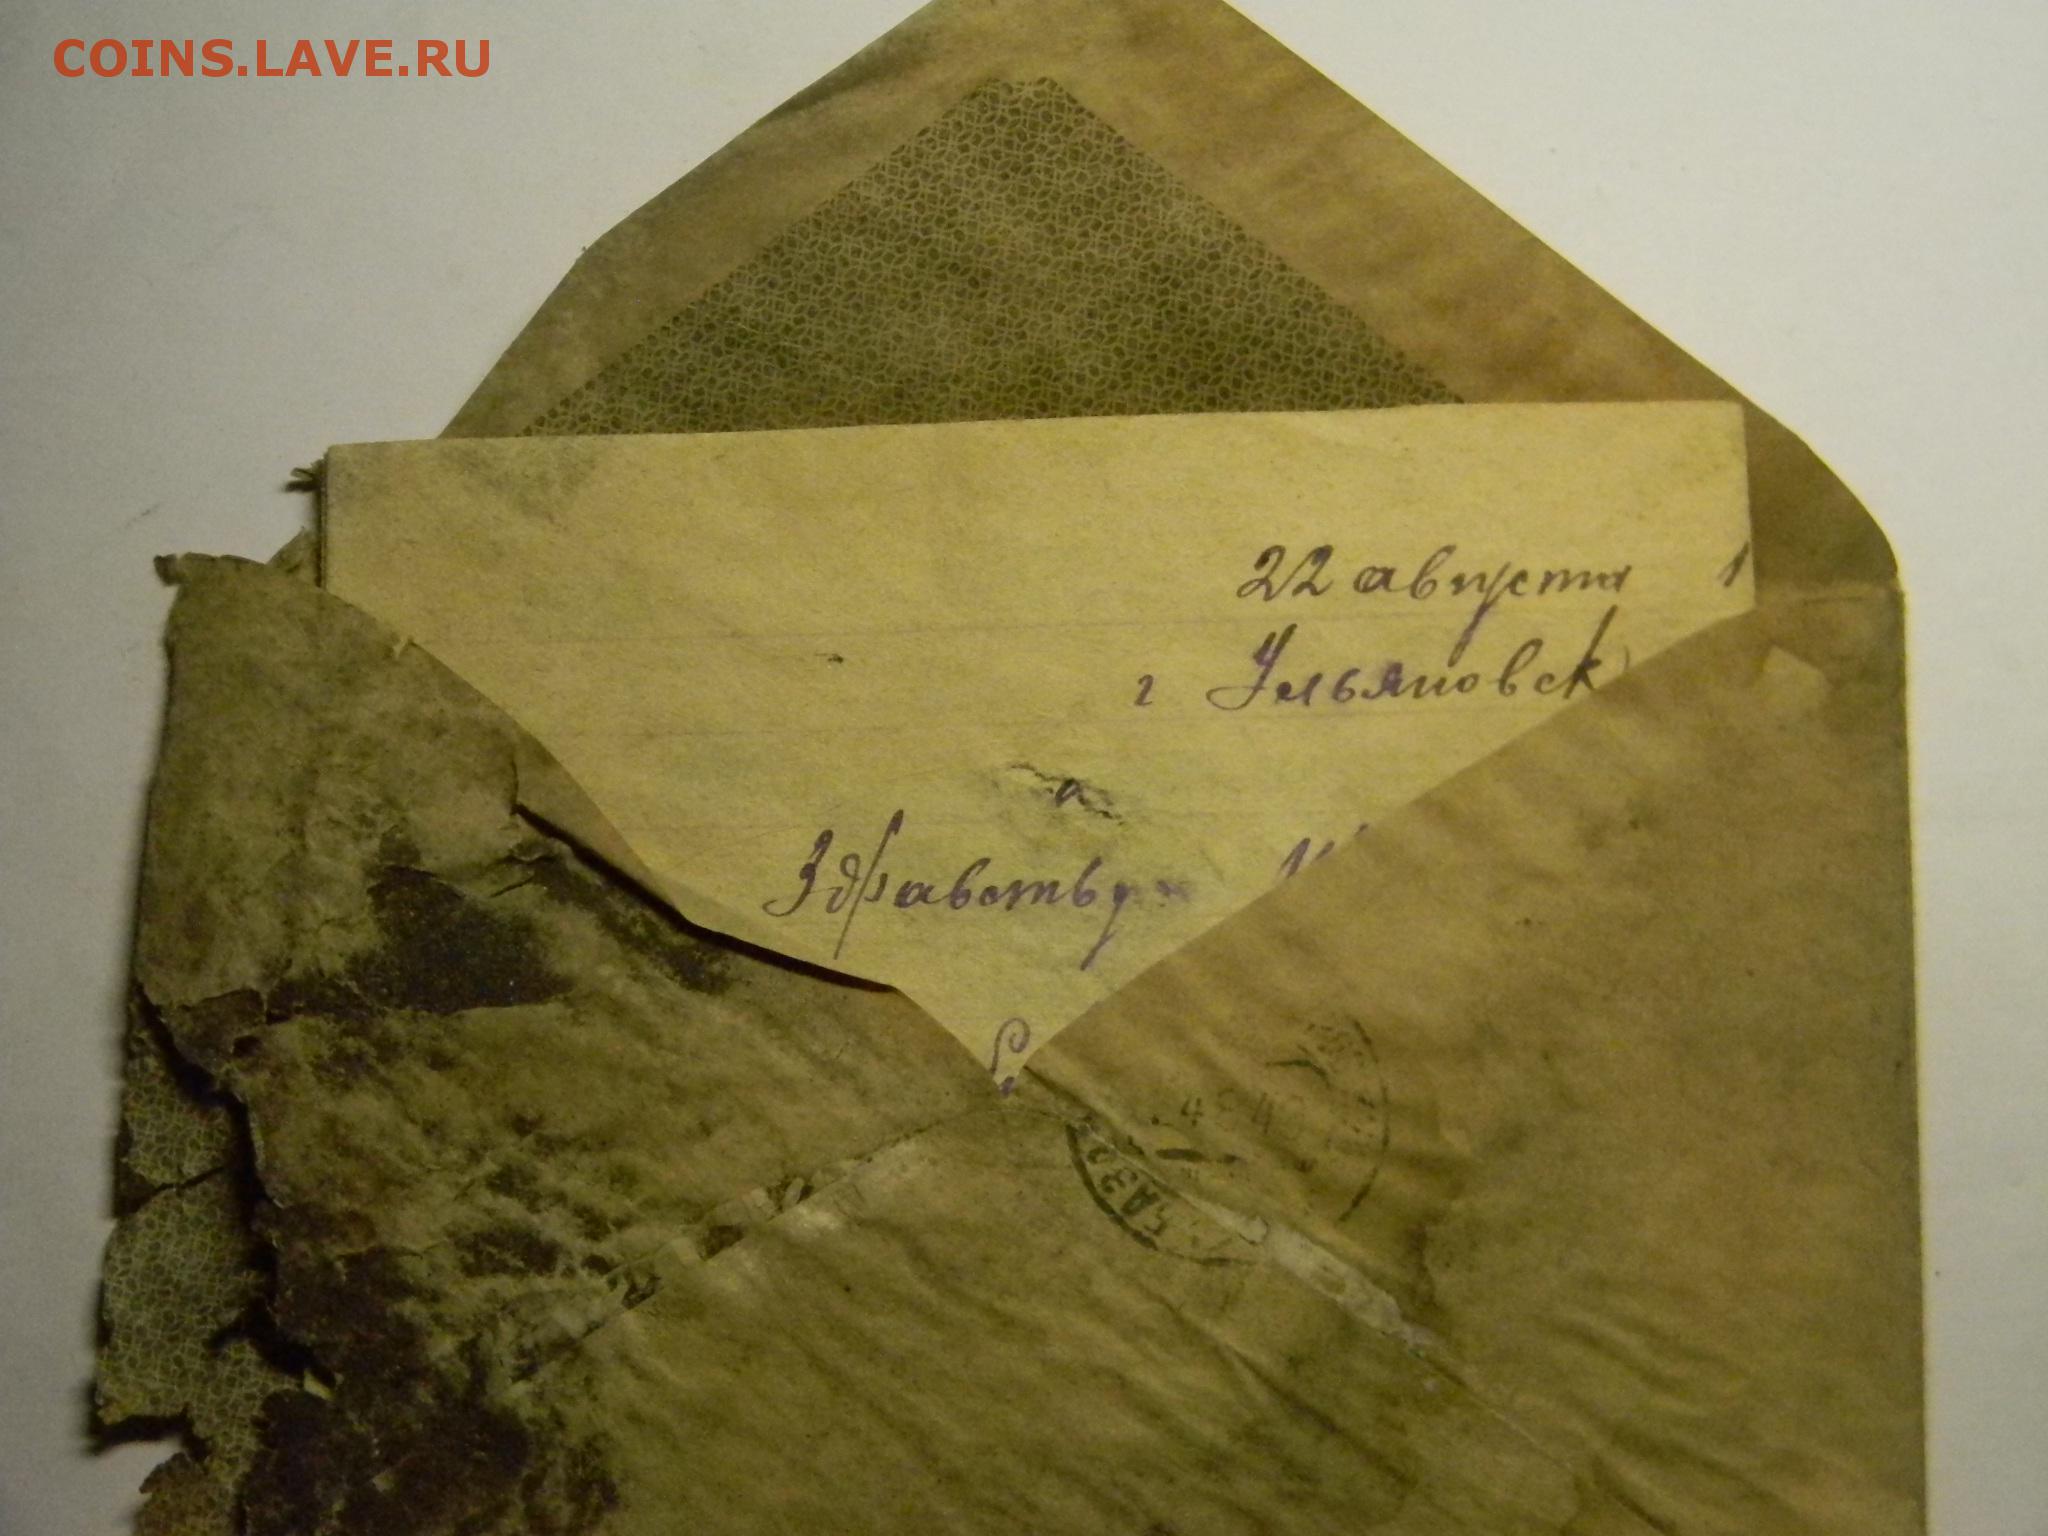 COINS.LAVE.RU
22 августа 1
г Ульяновск
Здравствуй